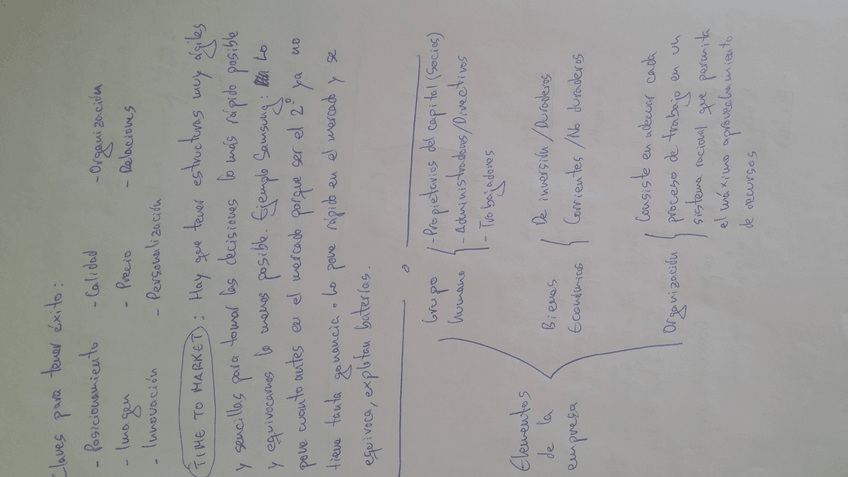 Claves para tener éxito:
- Posicionamiento - Calidad - Organización
- Imagen - Precio - Relaciones
- Innovación - Personalización
TIME TO MARKET: Hay que tener estructuras muy ágiles
y sencillas para tomar las decisiones lo más rápido posible
y equivocarnos lo menos posible. Ejemplo Samsung: Lo
pone cuanto antes en el mercado porque ser el 2º ya no
tiene tanta ganancia. Lo pone rápido en el mercado y se
equivoca, explotan baterías.
Elementos
de la
empresa
Grupo
humano
- Propietarios del capital (socios)
- Administradores/Directivos
- Trabajadores
Bienes
Económicos
De inversión/Duraderos
Corrientes/No duraderos
Organización
Consiste en adecuar cada
proceso de trabajo en un
sistema racional que permita
el máximo aprovechamiento
de recursos